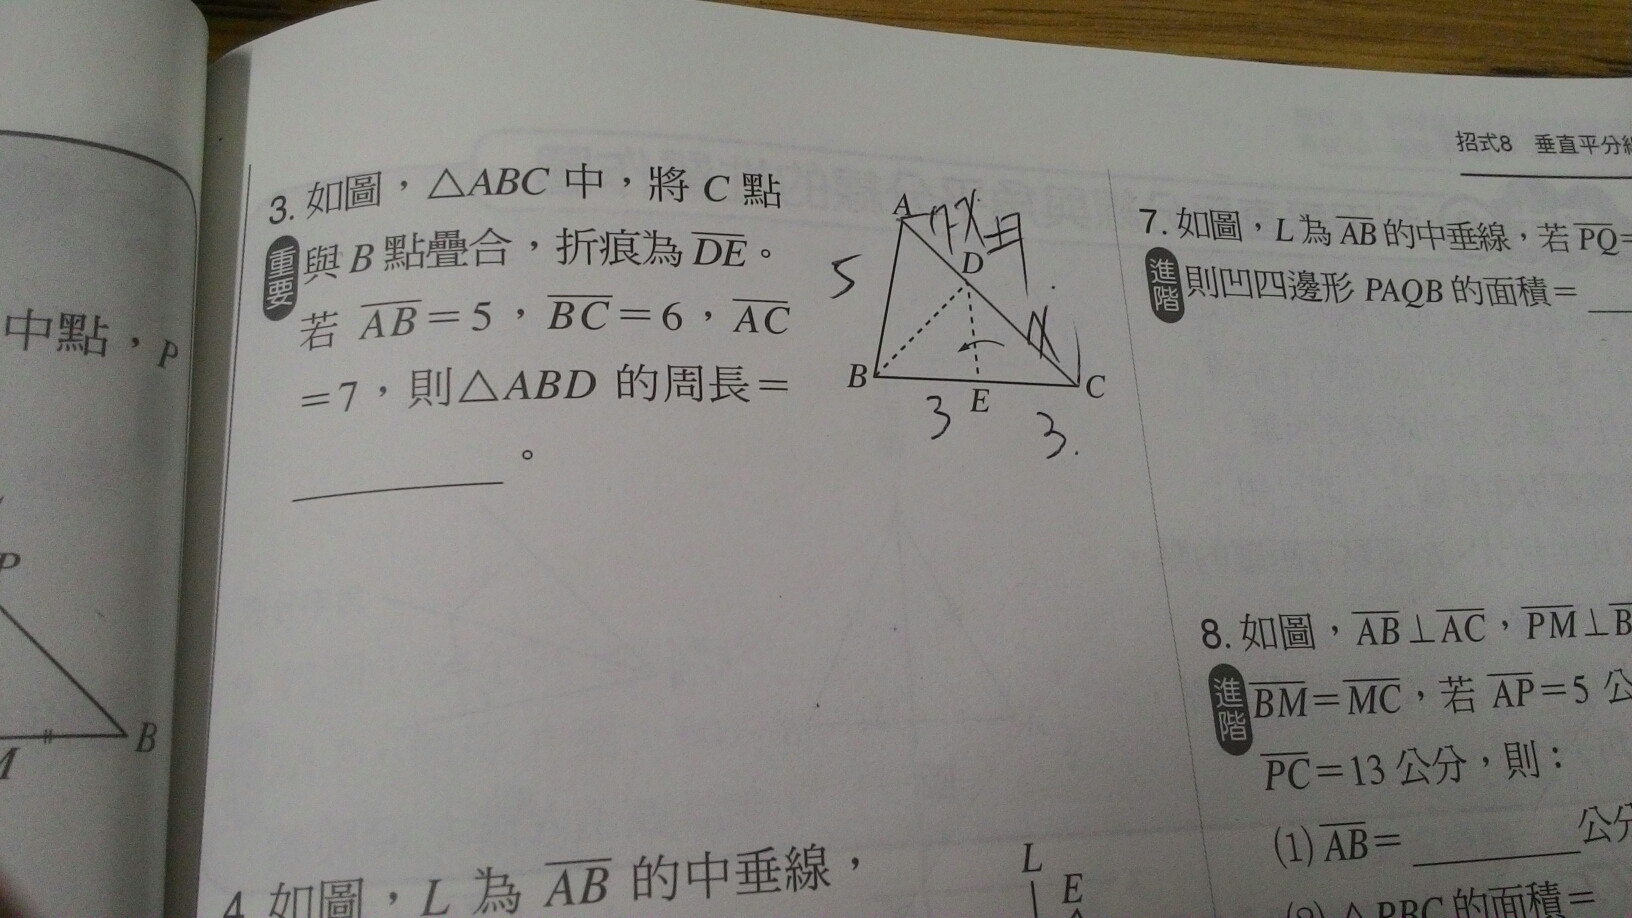 招式8 垂直平分
中點，P
P
B
3. 如圖，△ABC 中，將 C 點
重要
與 B 點疊合，折痕為 DE。
若 AB=5，BC=6，AC
=7，則△ABD 的周長=
。
A
D
5
B
E
C
3
3.
4 如圖，L 為 AB 的中垂線，
L
E
7. 如圖，L為 AB 的中垂線，若 PQ=
進階
則凹四邊形 PAQB 的面積=
8. 如圖，AB⊥AC，PM⊥B
進階
BM=MC，若 AP=5 公
PC=13 公分，則：
(1) AB= 公分
(2) △PBC 的面積=